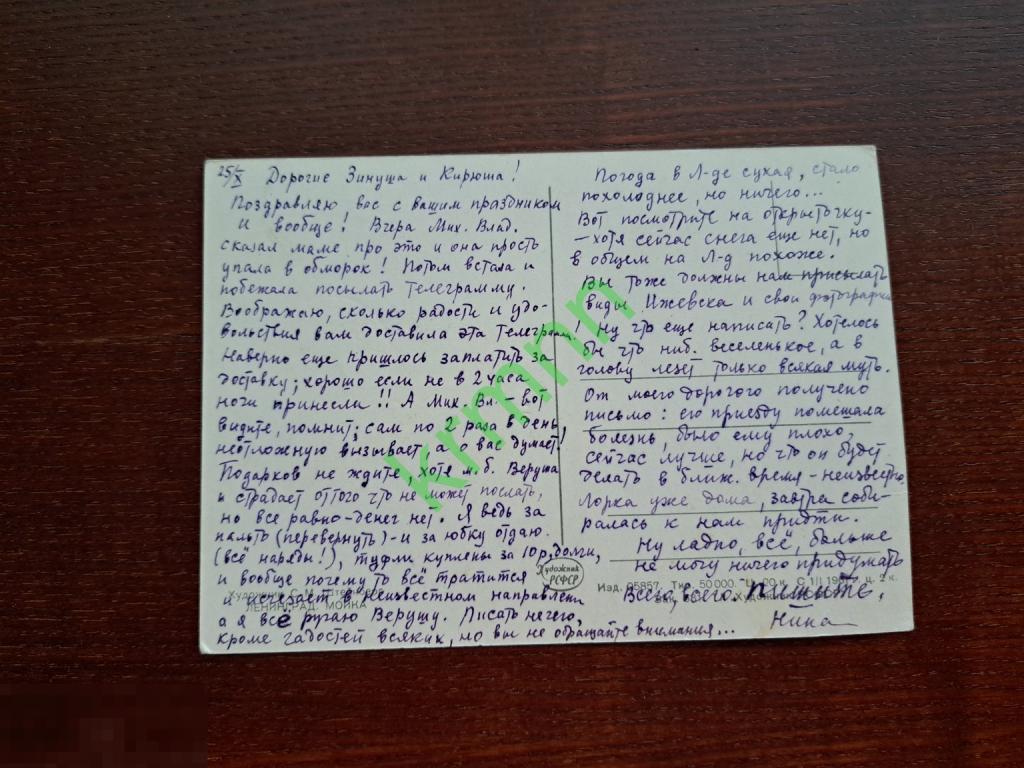 25/X Дорогие Зинуша и Кирюша!
Поздравляю вас с вашим праздником
и вообще! Вчера Мих. Влад.
сказал маме про это и она прость
упала в обморок! Потом встала и
побежала посылать телеграмму.
Воображаю, сколько радости и удо-
вольствия вам доставила эта телеграмма!
Наверно еще пришлось заплатить за
доставку; хорошо если не в 2 часа
ночи принесли!! А Мих. Вл. – вот
видите, помнит; сам по 2 раза в день
неотложную вызывает, а о вас думает!
Подарков не ждите, хотя м.б. Веруша
и страдает оттого что не может послать,
но все равно – денег нет. Я ведь за
пальто (перевернуть) – и за юбку отдаю.
(всё наряды!), туфли куплены за 10 р, долги,
и вообще почему то всё тратится
и исчезает в неизвестном направлени
а я всё ругаю Верушу. Писать нечего,
кроме гадостей всяких, но вы не обращайте внимания...
Погода в Л-де сухая, стало
похолоднее, но ничего...
Вот посмотрите на открыточку –
– хотя сейчас снега еще нет, но
в общем на Л-д похоже.
Вы тоже должны нам присылать
виды Ижевска и свои фотографии
Ну что еще написать? Хотелось
бы что ниб. веселенькое, а в
голову лезет только всякая муть.
От моего дорогого получено
письмо: его приезду помешала
болезнь, было ему плохо,
сейчас лучше, но что он будет
делать в ближ. время – неизвестно
Лорка уже дома, завтра соби-
ралась к нам придти.
Ну ладно, всё, больше
не могу ничего придумать
Всего, всего. Пишите.
Нина
Художник
РСФСР
Художник С. М.
ЛЕНИНГРАД. МОЙКА
Изд. 05857. Тир. 50000. Ц. к. С 1/I 19 ц. 2 к.
krmnn